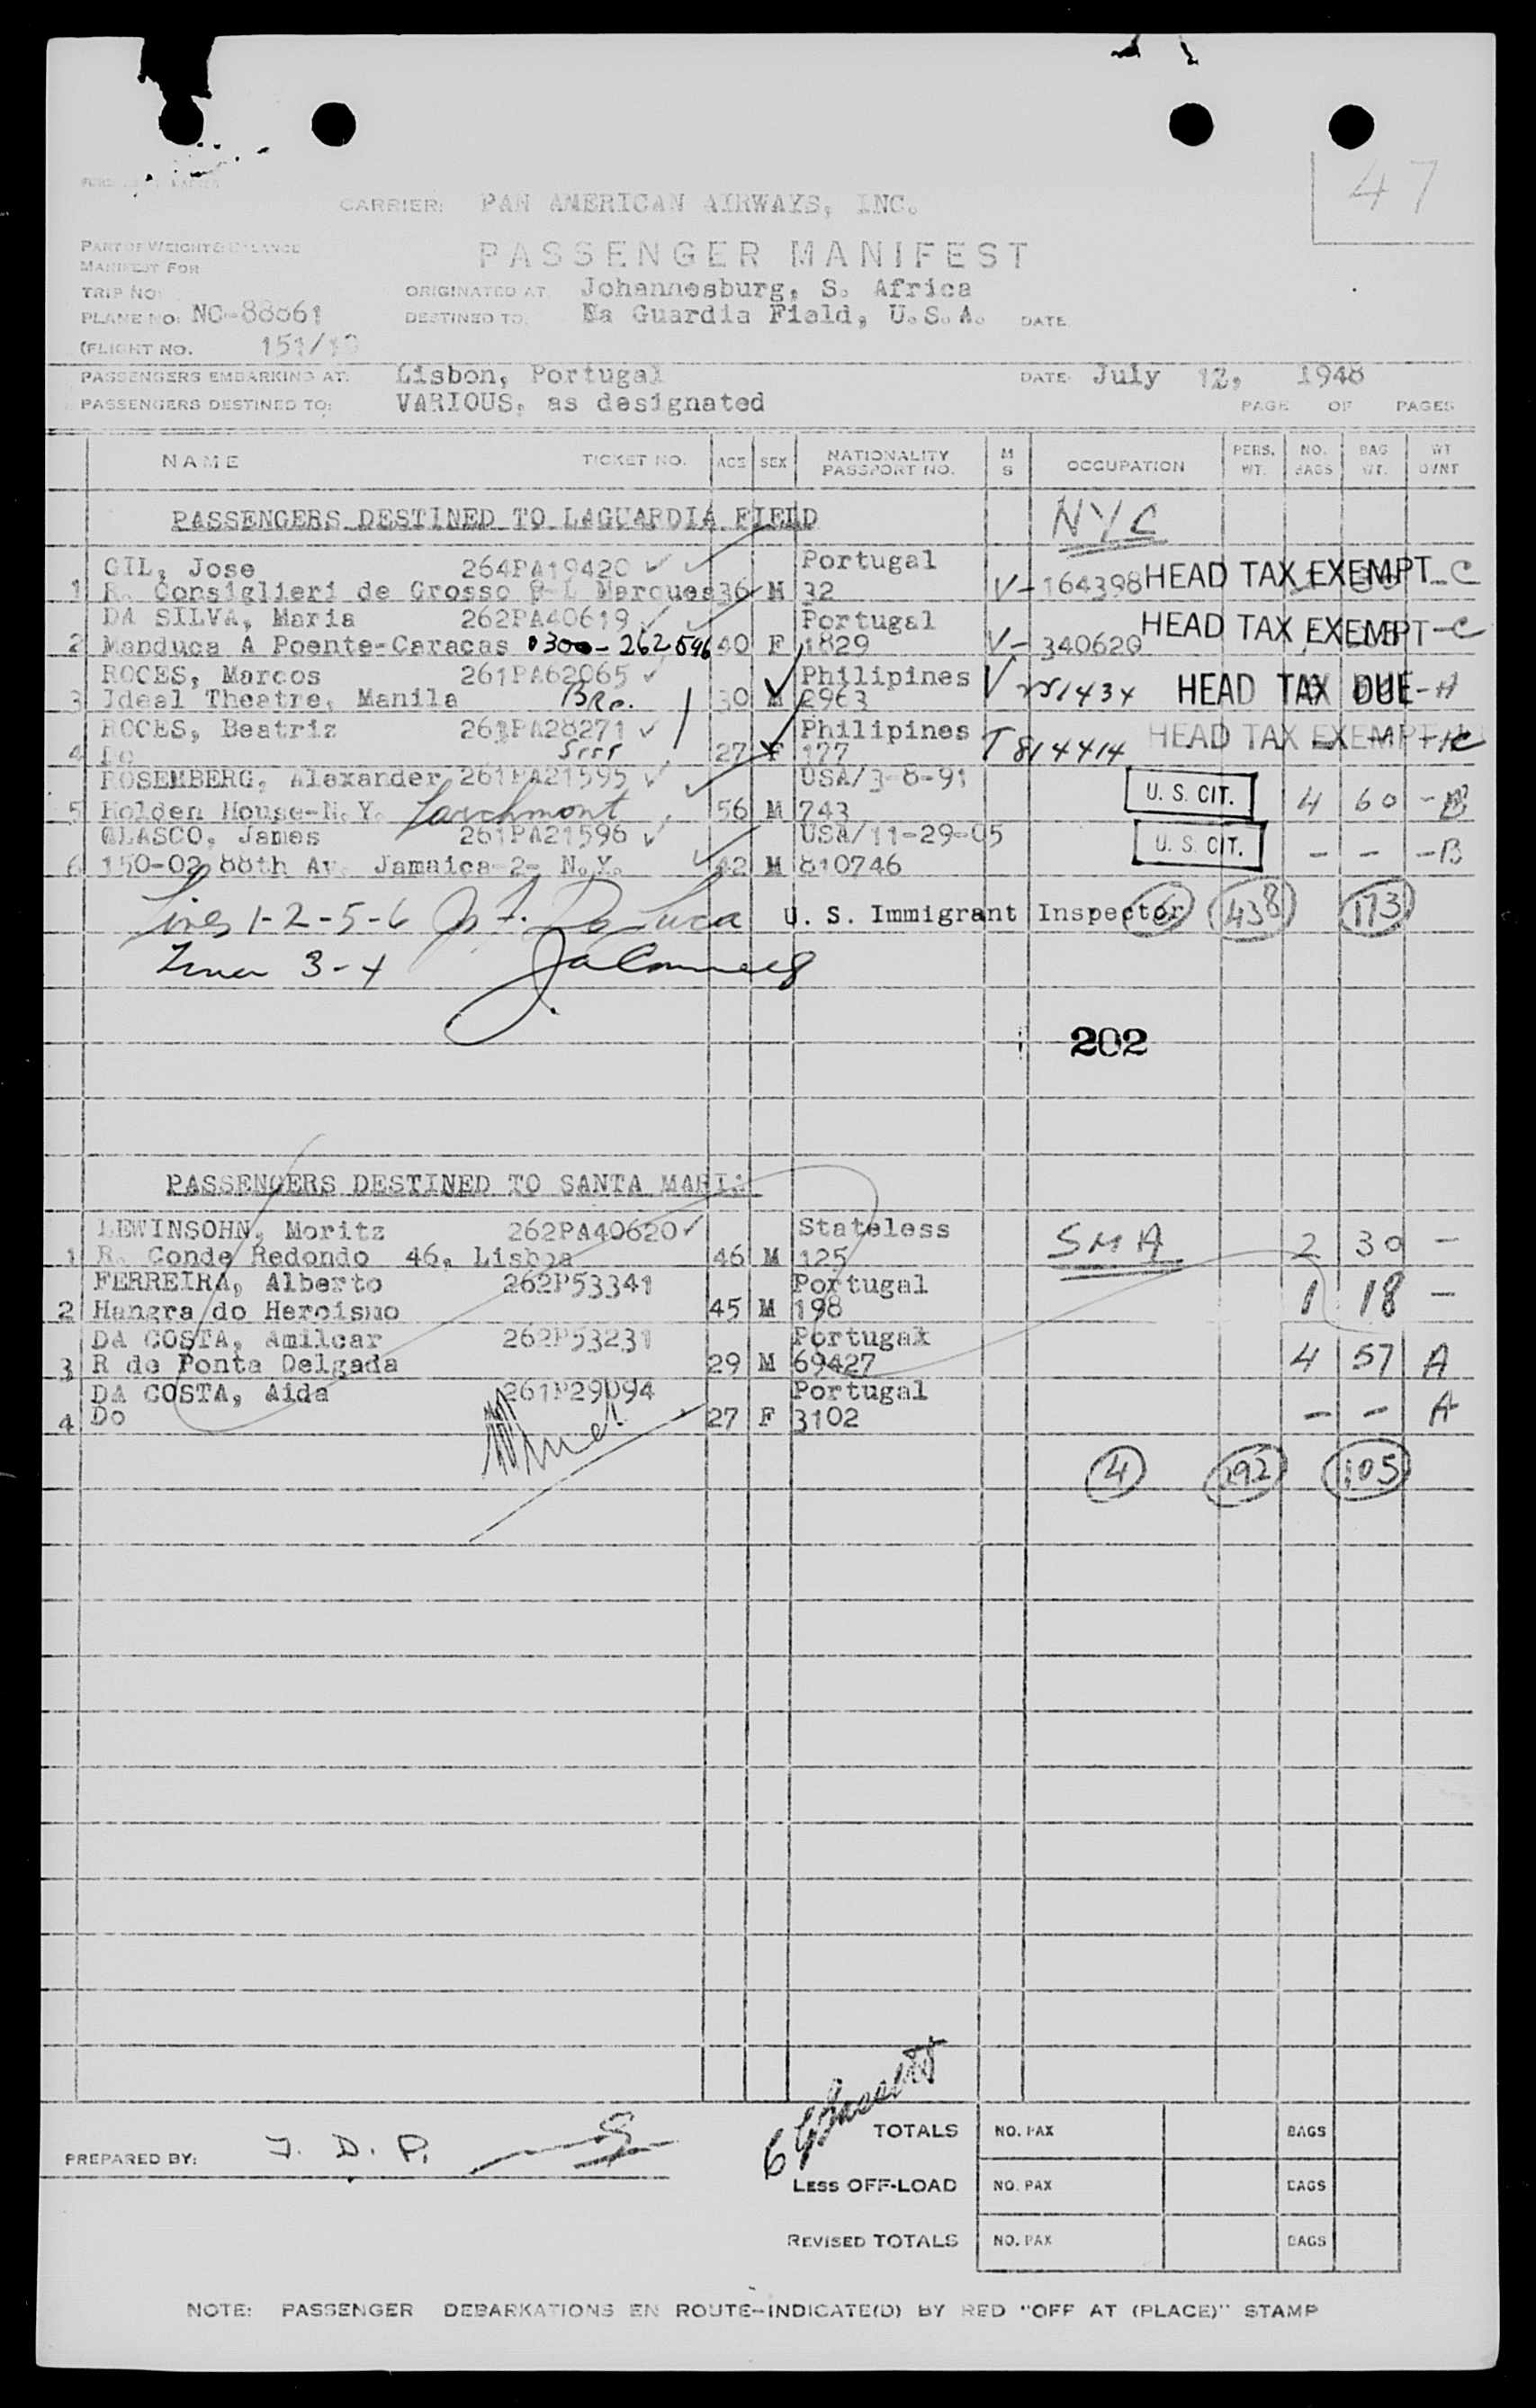 47
CARRIER: PAN AMERICAN AIRWAYS, INC.
PART OF WEIGHT & BALANCE
MANIFEST FOR
PASSENGER MANIFEST
TRIP NO:
ORIGINATED AT Johannesburg, S. Africa
PLANE NO: NC-88861
DESTINED TO. La Guardia Field, U.S.A. DATE
(FLIGHT NO. 151/
PASSENGERS EMBARKING AT: Lisbon, Portugal DATE July 12, 1948
PASSENGERS DESTINED TO: VARIOUS, as designated PAGE OF PAGES
NAME TICKET NO. AGE SEX NATIONALITY PASSPORT NO. M S OCCUPATION PERS. WT. NO. BAGS BAG WT. WT OVNT
PASSENGERS DESTINED TO LAGUARDIA FIELD NYC
GIL, Jose 264PA19420 Portugal
1 R. Consiglieri de Grosso 8-L Marques 36 M 32 V-164398 HEAD TAX EXEMPT-C
DA SILVA, Maria 262PA40619 Portugal
2 Manduca A Poente-Caracas 0300-262596 40 F 1829 V-340620 HEAD TAX EXEMPT-C
ROCES, Marcos 261PA62065 Philipines
3 Ideal Theatre, Manila 30 M 2963 V 251434 HEAD TAX DUE-A
ROCES, Beatriz 261PA28271 Philipines
4 Do 27 F 177 T 814414 HEAD TAX EXEMPT
ROSEMBERG, Alexander 261PA21595 USA/3-8-91
5 Holden House-N.Y. Larchmont 56 M 743 U. S. CIT. 4 60 -B
GLASCO, James 261PA21596 USA/11-29-05
6 150-02 88th Av. Jamaica-2- N.Y. 42 M 810746 U. S. CIT. - - -B
Lines 1-2-5-6 De Luca U. S. Immigrant Inspector 6 438 173
Lines 3-4
202
PASSENGERS DESTINED TO SANTA MARIA
LEWINSOHN, Moritz 262PA40620 Stateless
1 R. Conde Redondo 46, Lisboa 46 M 125 SMA 2 30 -
FERREIRA, Alberto 262P53341 Portugal
2 Hangra do Heroismo 45 M 198 1 18 -
DA COSTA, Amilcar 262P53231 Portugal
3 R de Ponta Delgada 29 M 69427 4 57 A
DA COSTA, Aida 261P29094 Portugal
4 Do 27 F 3102 - - A
4 292 105
TOTALS NO. PAX BAGS
PREPARED BY: J. D. P.
LESS OFF-LOAD NO. PAX BAGS
REVISED TOTALS NO. PAX BAGS
NOTE: PASSENGER DEBARKATIONS EN ROUTE-INDICATE(D) BY RED "OFF AT (PLACE)" STAMP